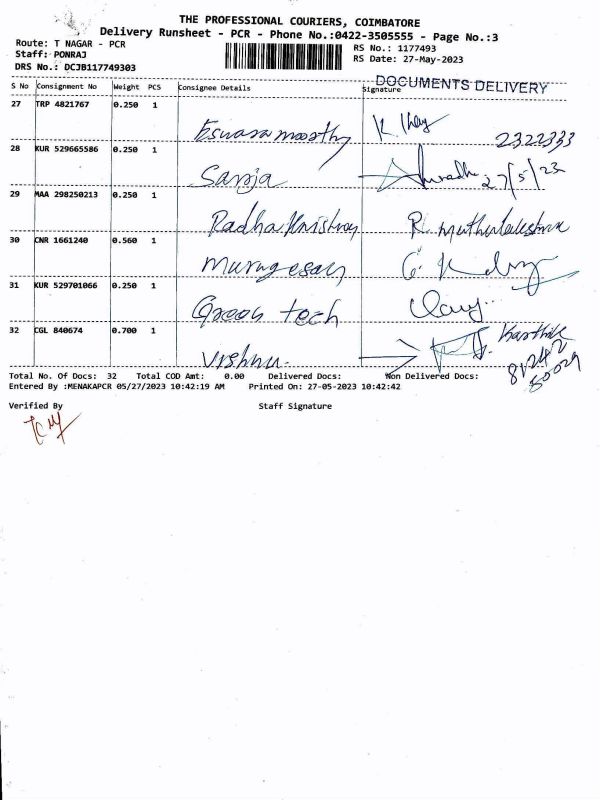 THE PROFESSIONAL COURIERS, COIMBATORE
Delivery Runsheet - PCR - Phone No.:0422-3505555 - Page No.:3
Route: T NAGAR - PCR
RS No.: 1177493
Staff: PONRAJ
RS Date: 27-May-2023
DRS No.: DCJB117749303
DOCUMENTS DELIVERY
S No Consignment No Weight PCS Consignee Details Signature
27 TRP 4821767 0.250 1
Eswaramoorthy 2322333
28 KUR 529665586 0.250 1
Sanja Anuradha 27/5/23
29 MAA 298250213 0.250 1
Radha Krishnan R. Muthulakshmi
30 CNR 1661240 0.560 1
Murugesan
31 KUR 529701066 0.250 1
Green tech
32 CGL 840674 0.700 1
Vishnu. Karthik
81242
50029
Total No. Of Docs: 32 Total COD Amt: 0.00 Delivered Docs: Non Delivered Docs:
Entered By :MENAKAPCR 05/27/2023 10:42:19 AM Printed On: 27-05-2023 10:42:42
Verified By Staff Signature